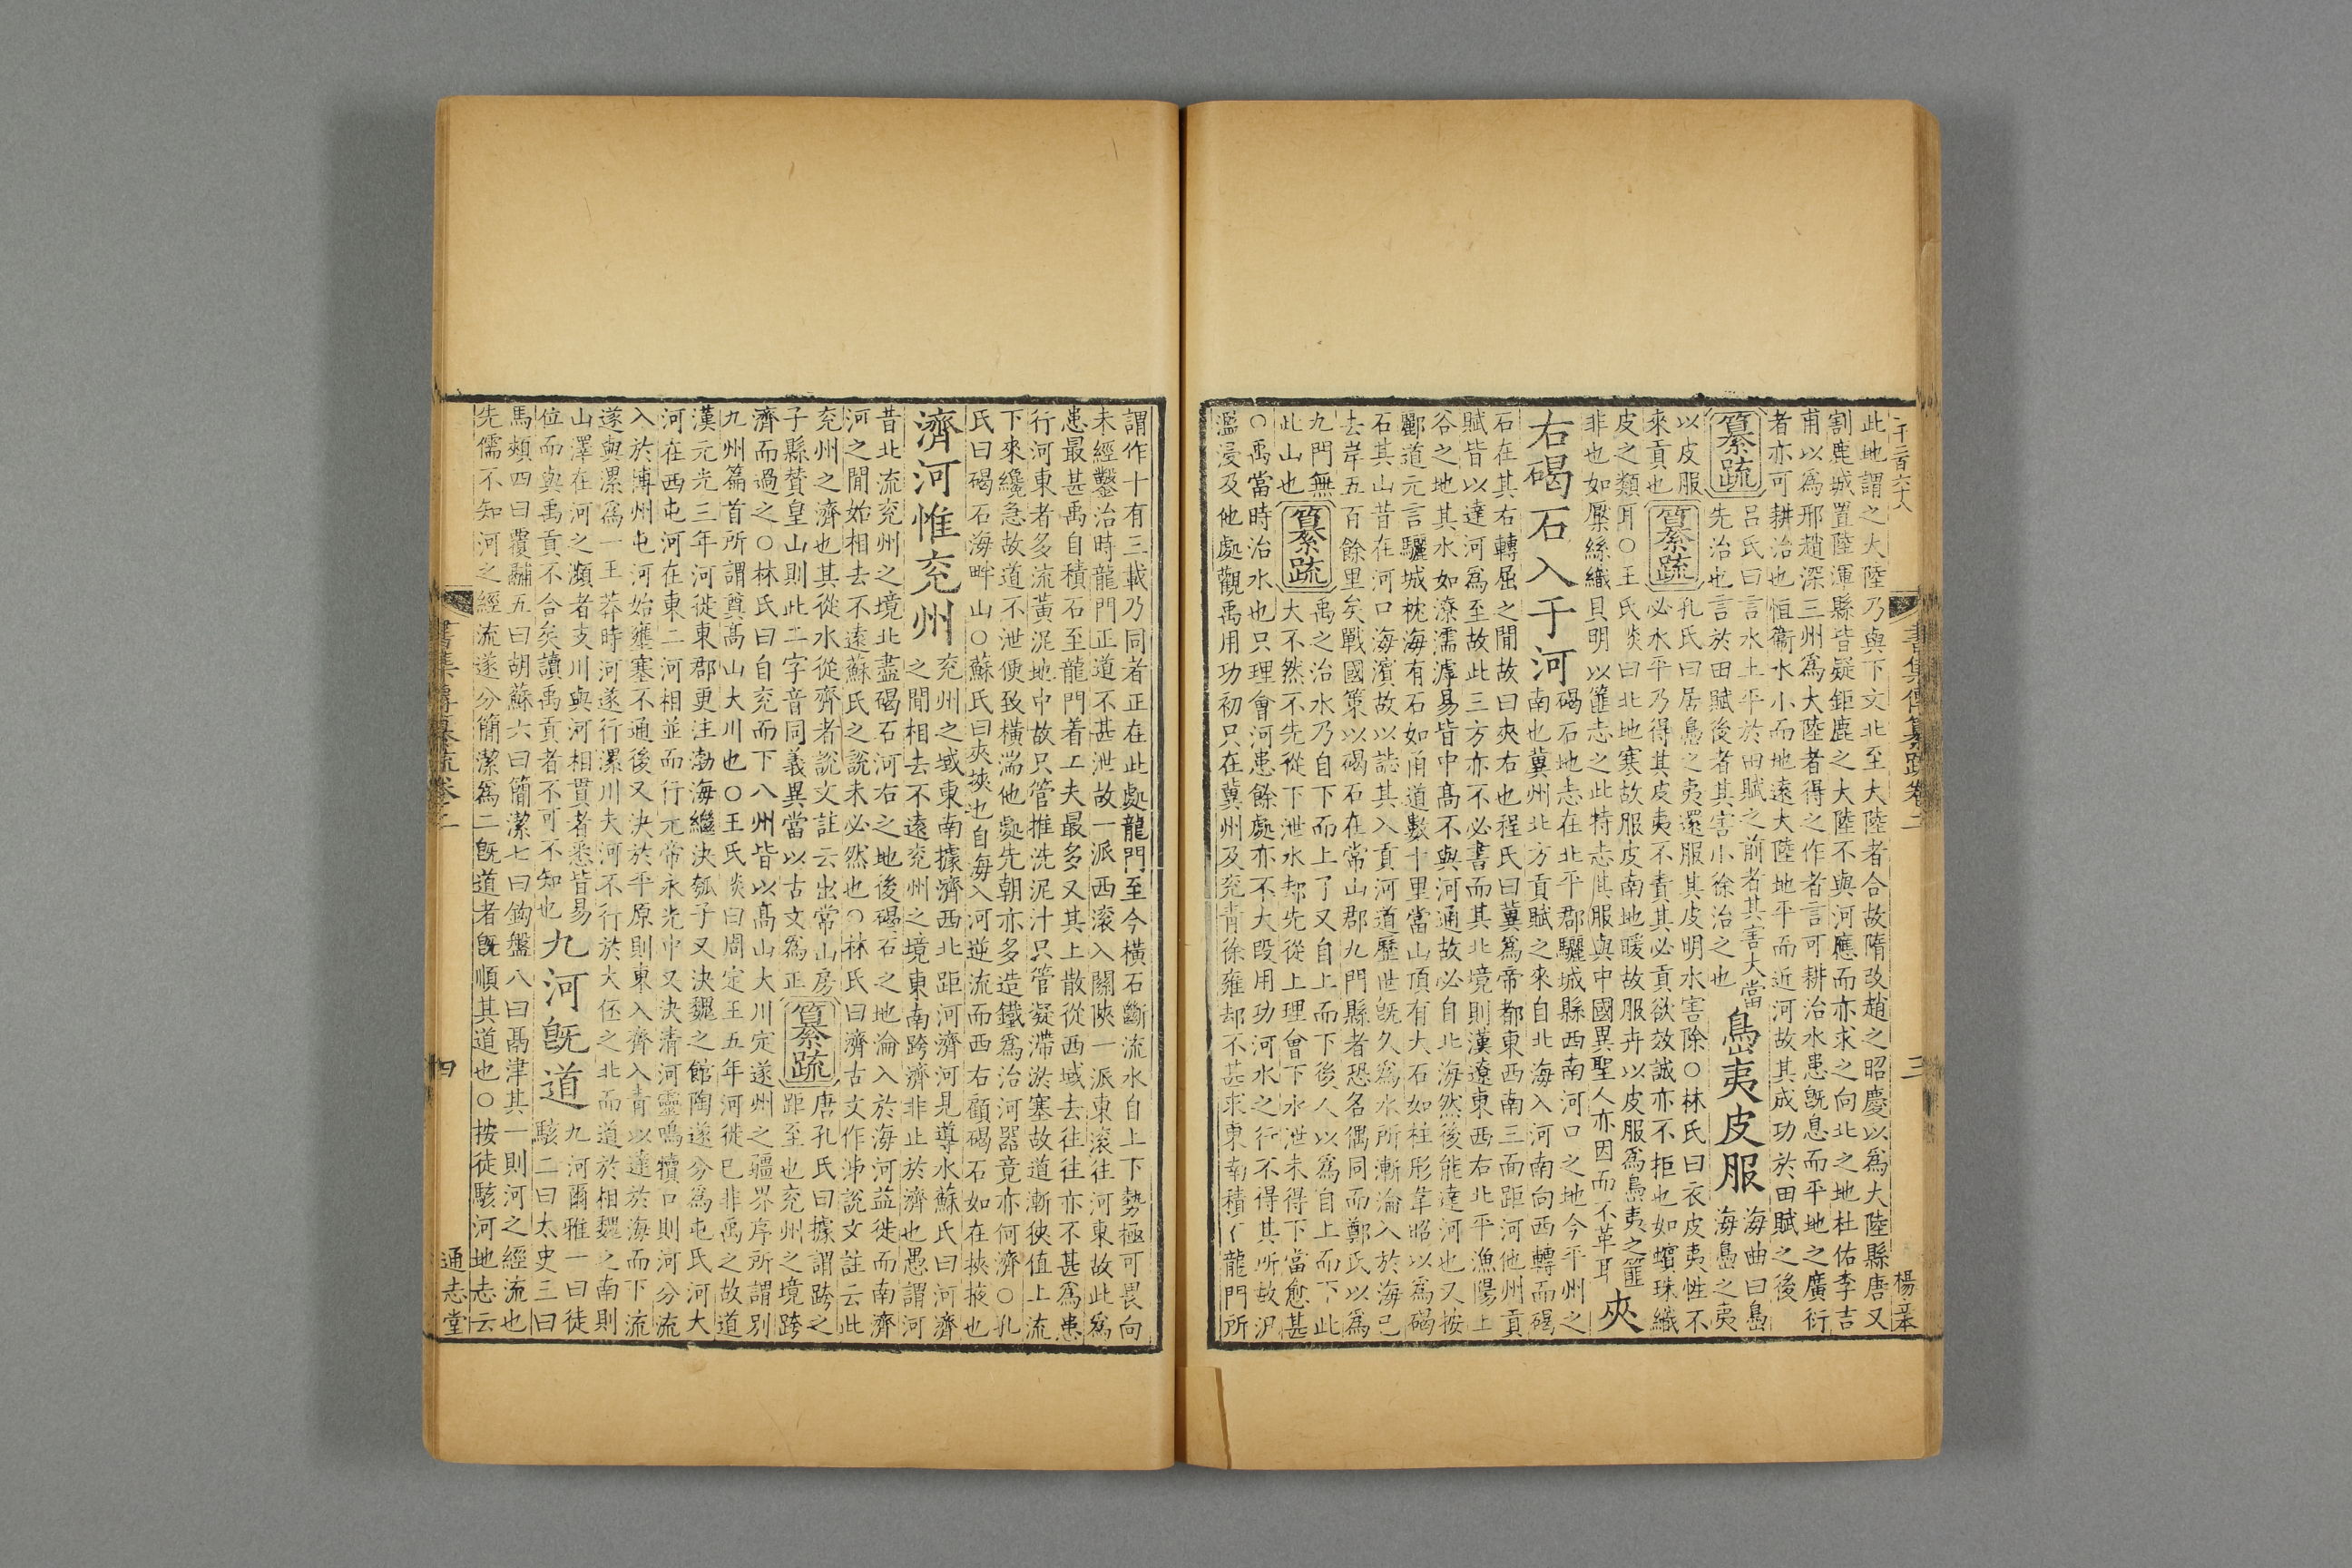 一千二百六十八
書集傳纂疏卷二
三
此地謂之大陸乃與下文北至大陸者合故隋改趙之昭慶以爲大陸縣唐又
割鹿城置陸渾縣皆疑鉅鹿之大陸不與河應而亦求之向北之地杜佑李吉
甫以爲邢趙深三州爲大陸者得之作者言可耕治水患旣息而平地之廣衍
者亦可耕治也恒衞水小而地遠大陸地平而近河故其成功於田賦之後
纂疏
呂氏曰言水土平於田賦之前者其害大當
先治也言於田賦後者其害小徐治之也
島夷皮服
海曲曰島
海島之夷
以皮服
來貢也
纂疏
孔氏曰居島之夷還服其皮明水害除○林氏曰衣皮夷性不
必水平乃得其皮夷不責其必貢欲效誠亦不拒也如蠙珠織
皮之類耳○王氏炎曰北地寒故服皮南地暖故服卉以皮服爲島夷之篚
非也如檿絲織貝明以篚志之此特志其服與中國異聖人亦因而不革耳
夾
右碣石入于河
碣石地志在北平郡驪城縣西南河口之地今平州之
南也冀州北方貢賦之來自北海入河南向西轉而碣
石在其右轉屈之閒故曰夾右也程氏曰冀爲帝都東西南三面距河他州貢
賦皆以達河爲至故此三方亦不必書而其北境則漢遼東西右北平漁陽上
谷之地其水如潦濡滹易皆中高不與河通故必自北海然後能達河也又按
酈道元言驪城枕海有石如甬道數十里當山頂有大石如柱形韋昭以爲碣
石其山昔在河口海濱故以誌其入貢河道歷世旣久爲水所漸淪入於海已
去岸五百餘里矣戰國策以碣石在常山郡九門縣者恐名偶同而鄭氏以爲
九門無
此山也
纂疏
禹之治水乃自下而上了又自上而下後人以爲自上而下此
大不然不先從下泄水却先從上理會下水泄未得下當愈甚
○禹當時治水也只理會河患餘處亦不大段用功河水之行不得其所故汎
濫浸及他處觀禹用功初只在冀州及兗青徐雍却不甚求東南積〻龍門所
謂作十有三載乃同者正在此處龍門至今橫石斷流水自上下勢極可畏向
未經鑿治時龍門正道不甚泄故一派西滾入關陝一派東滾往河東故此爲
患最甚禹自積石至龍門着工夫最多又其上散從西域去往往亦不甚爲患
行河東者多流黃泥地中故只管推洗泥汁只管凝滯淤塞故道漸狹値上流
下來纔急故道不泄便致橫湍他處先朝亦多造鐵爲治河器竟亦何濟○孔
氏曰碣石海畔山○蘇氏曰夾挾也自海入河逆流而西右顧碣石如在挾掖也
濟河惟兗州
兗州之域東南據濟西北距河濟河見導水蘇氏曰河濟
之閒相去不遠兗州之境東南跨濟非止於濟也愚謂河
昔北流兗州之境北盡碣石河右之地後碣石之地淪入於海河益徙而南濟
河之閒始相去不遠蘇氏之說未必然也○林氏曰濟古文作泲說文註云此
兗州之濟也其從水從齊者說文註云出常山房
子縣贊皇山則此二字音同義異當以古文爲正
纂疏
唐孔氏曰據謂跨之
距至也兗州之境跨
濟而過之○林氏曰自兗而下八州皆以高山大川定遂州之疆界序所謂別
九州篇首所謂奠高山大川也○王氏炎曰周定王五年河徙已非禹之故道
漢元光三年河徙東郡更注渤海繼決瓠子又決魏之館陶遂分爲屯氏河大
河在西屯河在東二河相並而行元帝永光中又決淸河靈鳴犢口則河分流
入於博州屯河始壅塞不通後又決於平原則東入齊入靑以達於海而下流
遂與漯爲一王莽時河遂行漯川夫河不行於大伾之北而道於相魏之南則
山澤在河之瀕者支川與河相貫者悉皆易
位而與禹貢不合矣讀禹貢者不可不知也
九河旣道
九河爾雅一曰徒
駭二曰太史三曰
馬頰四曰覆鬴五曰胡蘇六曰簡潔七曰鉤盤八曰鬲津其一則河之經流也
先儒不知河之經流遂分簡潔爲二旣道者旣順其道也○按徒駭河地志云
四
通志堂